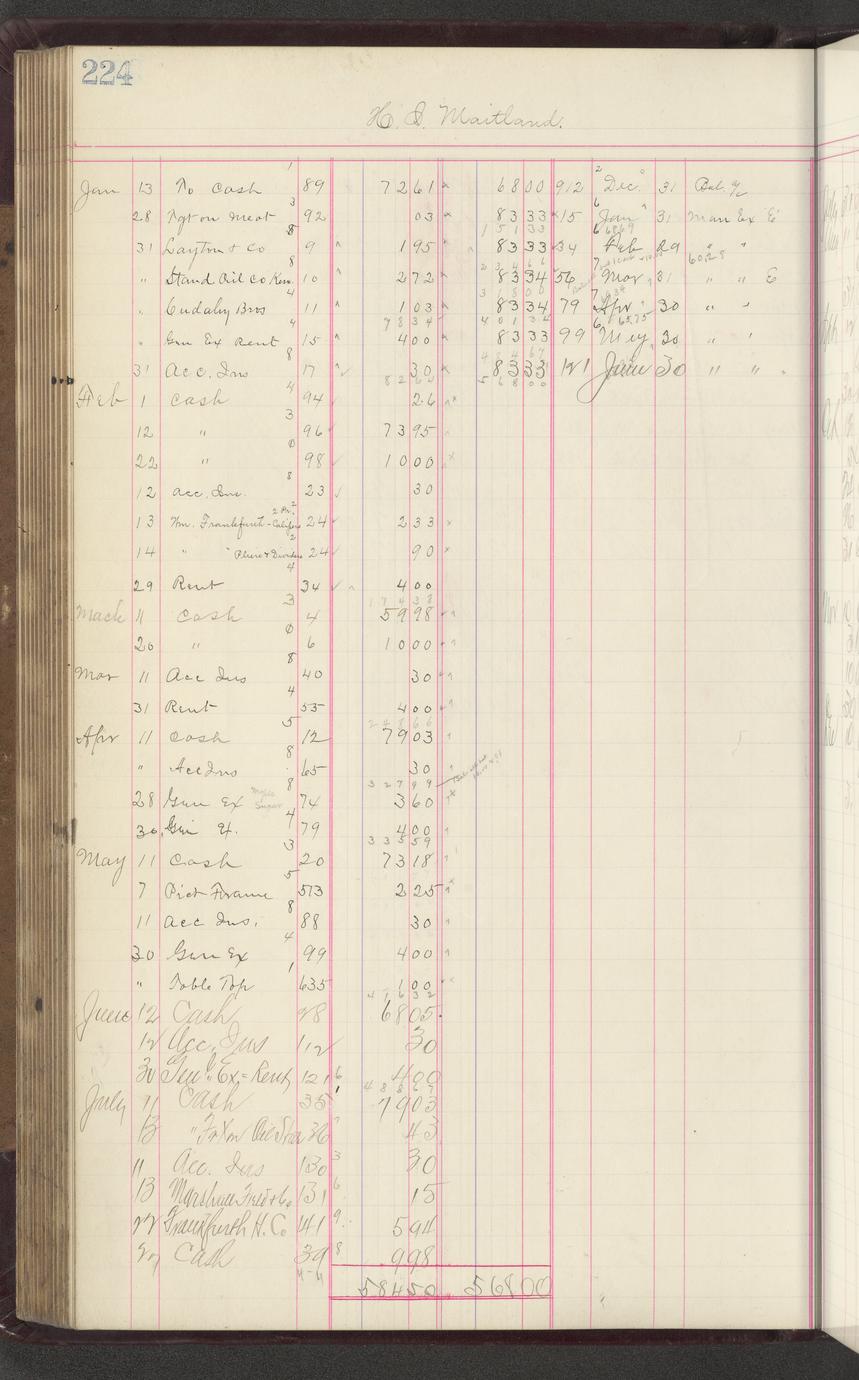 224
H. S. Maitland.
Jan 13 To Cash 89 72 61 68 00 912 Dec. 31 Bal. %
28 Fgt on Meat 92 03 83 33 15 Jan 31 Man Ex E
31 Layton & Co 9 1 95 83 33 34 Feb 29 " "
" Stand Oil Co Ken. 10 2 72 83 34 56 Mar 31 " " E
" Cudahy Bros 11 1 03 83 34 79 Apr 30 " "
" Gen Ex Rent 15 4 00 83 33 99 May 30 " "
31 Acc. Ins 17 30 83 33 121 June 30 " "
Feb 1 Cash 94 26
12 " 96 73 95
22 " 98 10 00
12 Acc. Ins. 23 30
13 Wm. Frankfurth - Calipers 24 2 33
14 " " Pliers & Dividers 24 90
29 Rent 34 4 00
1 7 4 3 8
Mach 11 Cash 4 59 98
20 " 6 10 00
Mar 11 Acc Ins 40 30
31 Rent 55 4 00
2 4 8 6 6
Apr 11 Cash 12 79 03
" Acc Ins 65 30
3 2 7 9 9
28 Gen Ex Maple Sugar 74 3 60
30 Gen Ex. 79 4 00
3 3 5 5 9
May 11 Cash 20 73 18
7 Pict Frame 573 2 25
11 Acc Ins. 88 30
30 Gen Ex 99 4 00
" Table Top 635 1 00
4 1 6 3 2
June 12 Cash 28 68 05
12 Acc. Ins 112 30
30 Gen. Ex = Rent 121 4 00
4 8 8 6 7
July 11 Cash 35 79 03
13 " 36 43
11 Acc. Ins 130 30
13 Marshall Field & Co 131 15
22 Frankfurth H. Co 141 5 94
27 Cash 39 9 98
584 50 568 00